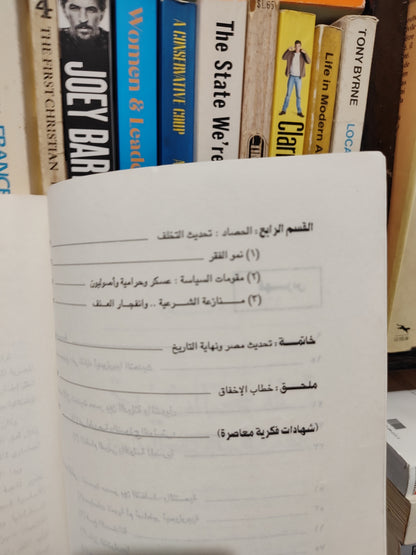 THE FIRST CHRISTIAN
JOEY BAR
Women & Leade
A CONSERVATIVE COUP
The State We're
$1.65
Clar
Life in Modern A
TONY BYRNE
LOCA
القسم الرابع : الحصاد : تحديث التخلف
(١) نمو الفقر
(٢) مقومات السياسة : عسكر وحرامية وأصوليون
(٣) منازعة الشرعية .. وانفجار العنف
خاتمة : تحديث مصر ونهاية التاريخ
ملحق : خطاب الإخفاق
(شهادات فكرية معاصرة)